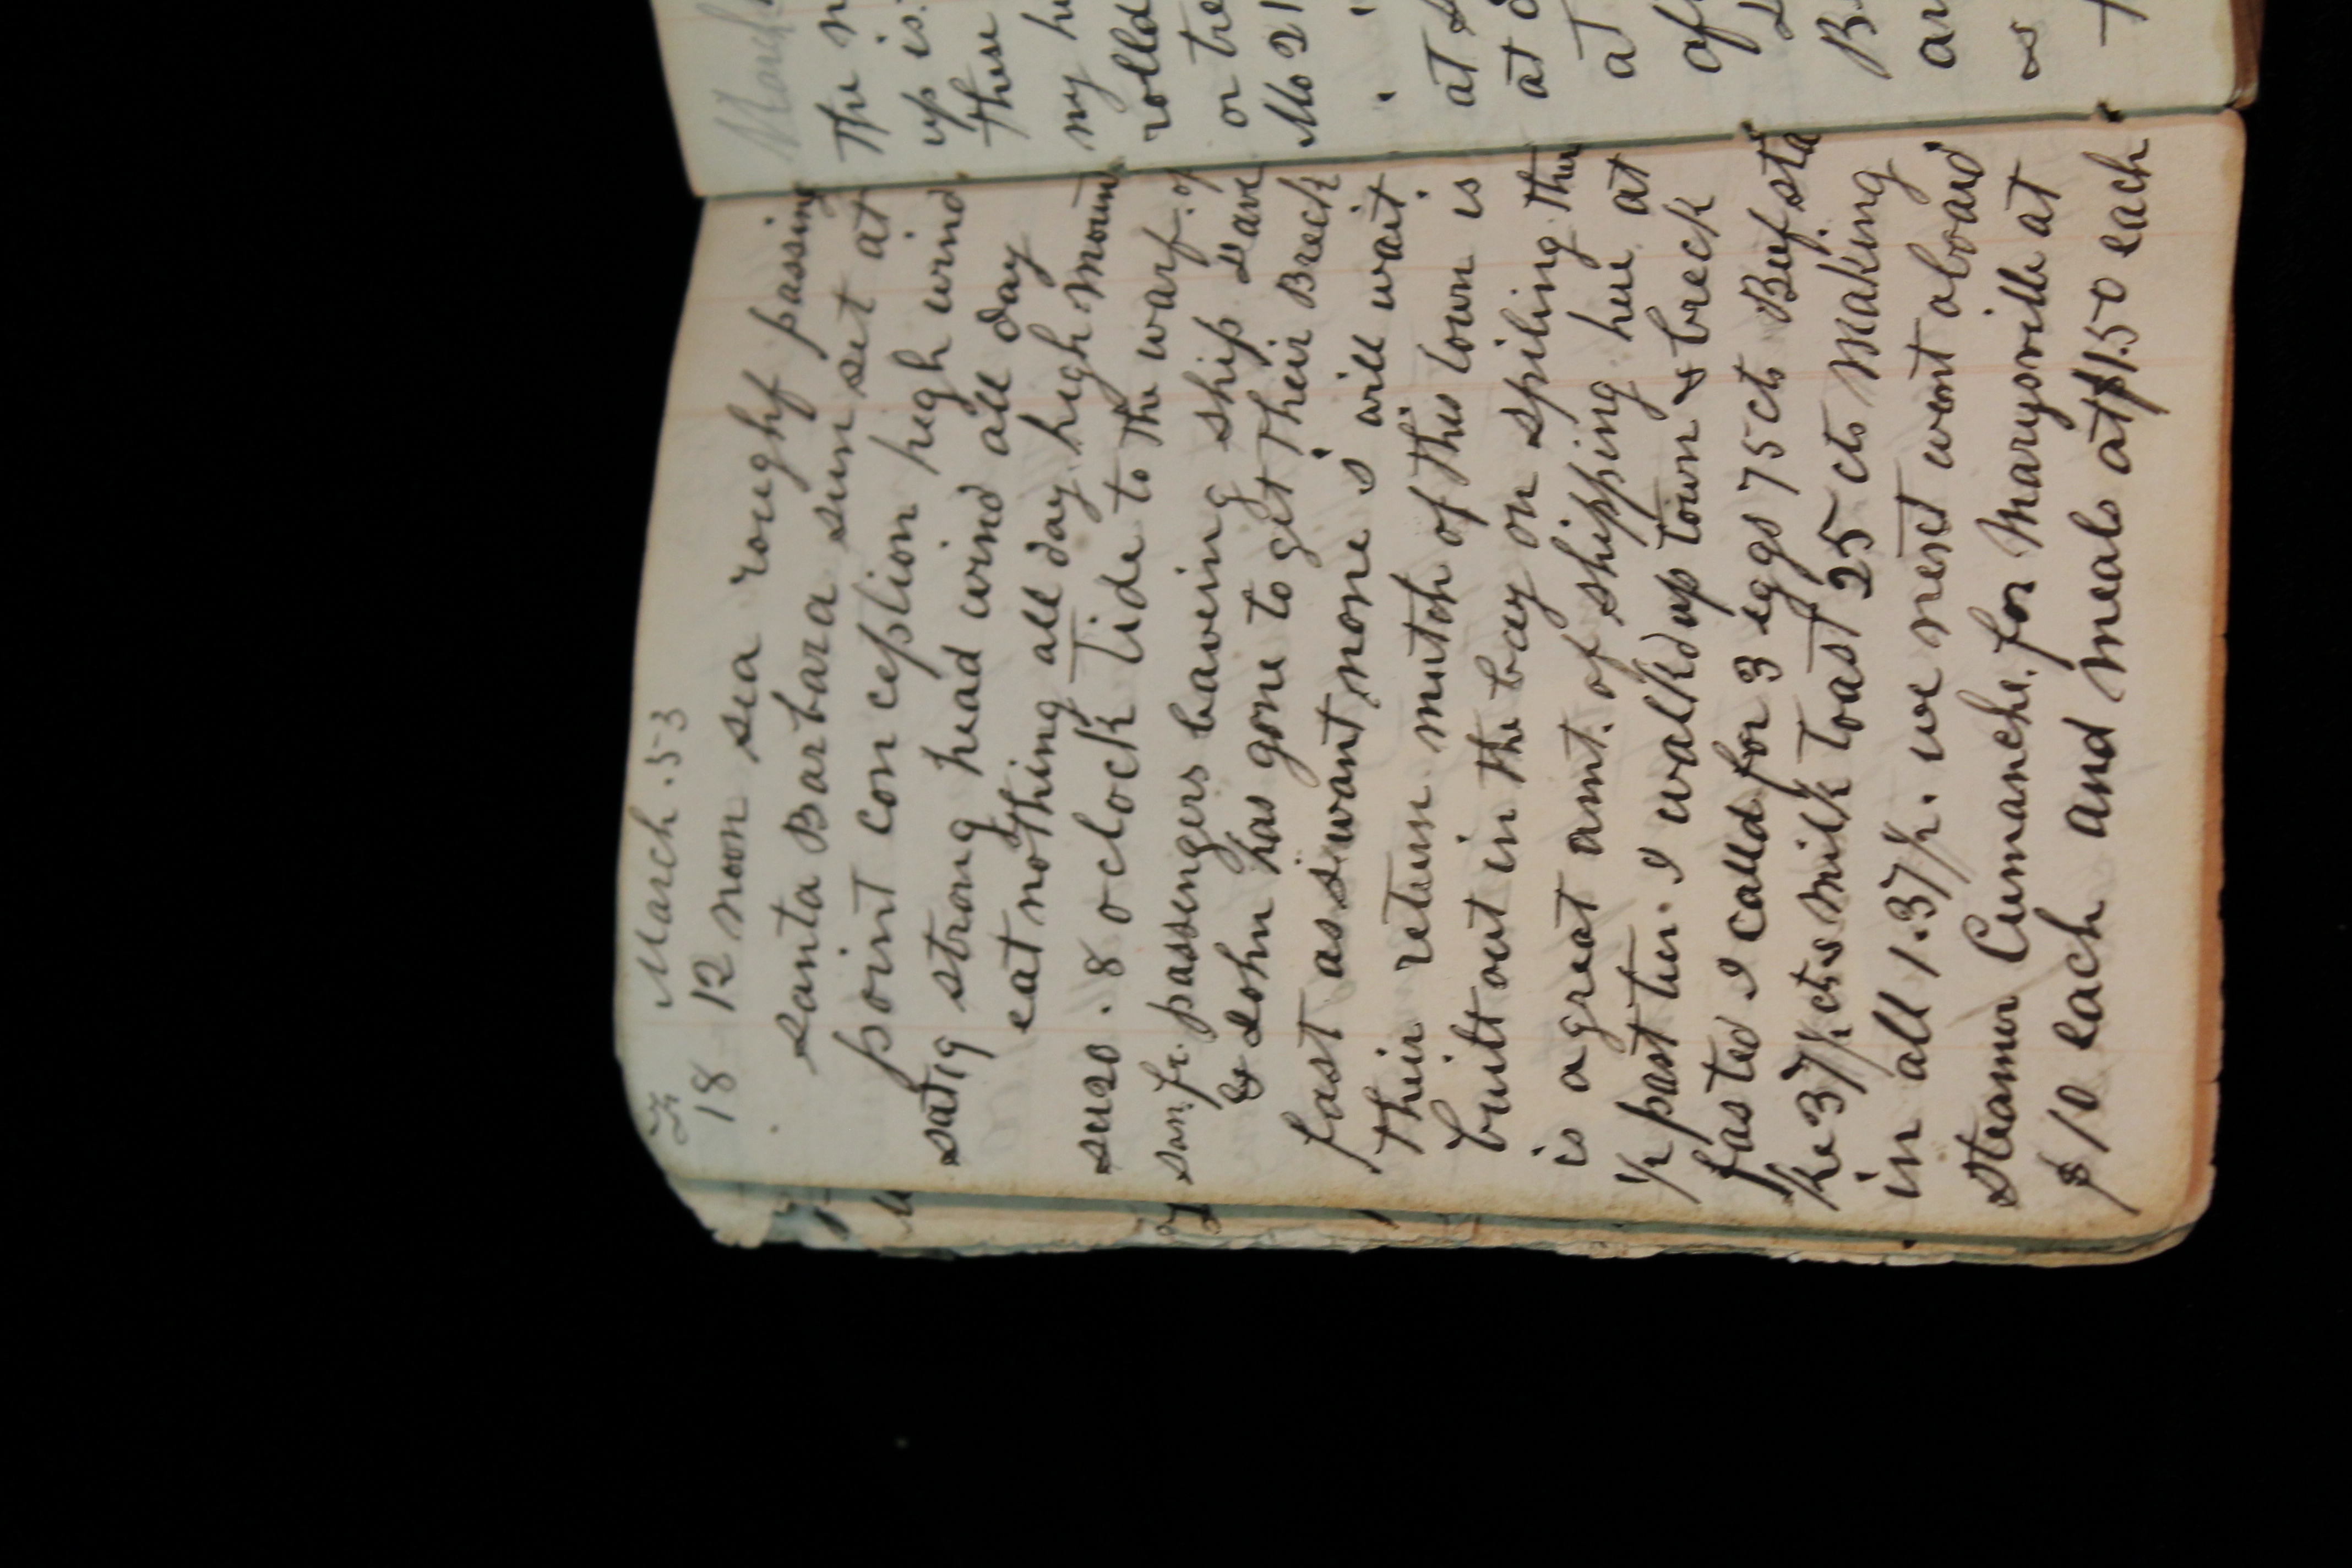 F March .53
18 12 noon sea roughf passing
santa Barbara sun set at
point conception high wind
sat 19 strong head wind all day
eat nothing all day high moun
su 20 . 8 oclock Tide to the warf. of
san. fr. passengers leaveing ship Dave
& John has gone to get their Breck
fast as i want none i will wait
their return mutch of this town is
built out in the bay on spiling ther
is a great amt. of shipping here at
1/2 past ten. I walkd up town & breck
fasted I calld for 3 eggs 75 cts Beef sta
ke 37 1/2 cts & Milk toast 25 cts Making
in all 1.37 1/2. we next went aboard
steamer Cumanche. for Marysville at
$10 each and meals at $1.50 each
March
the
up is
these
my
rolld
or
Mo 21
at
at
at
B
&